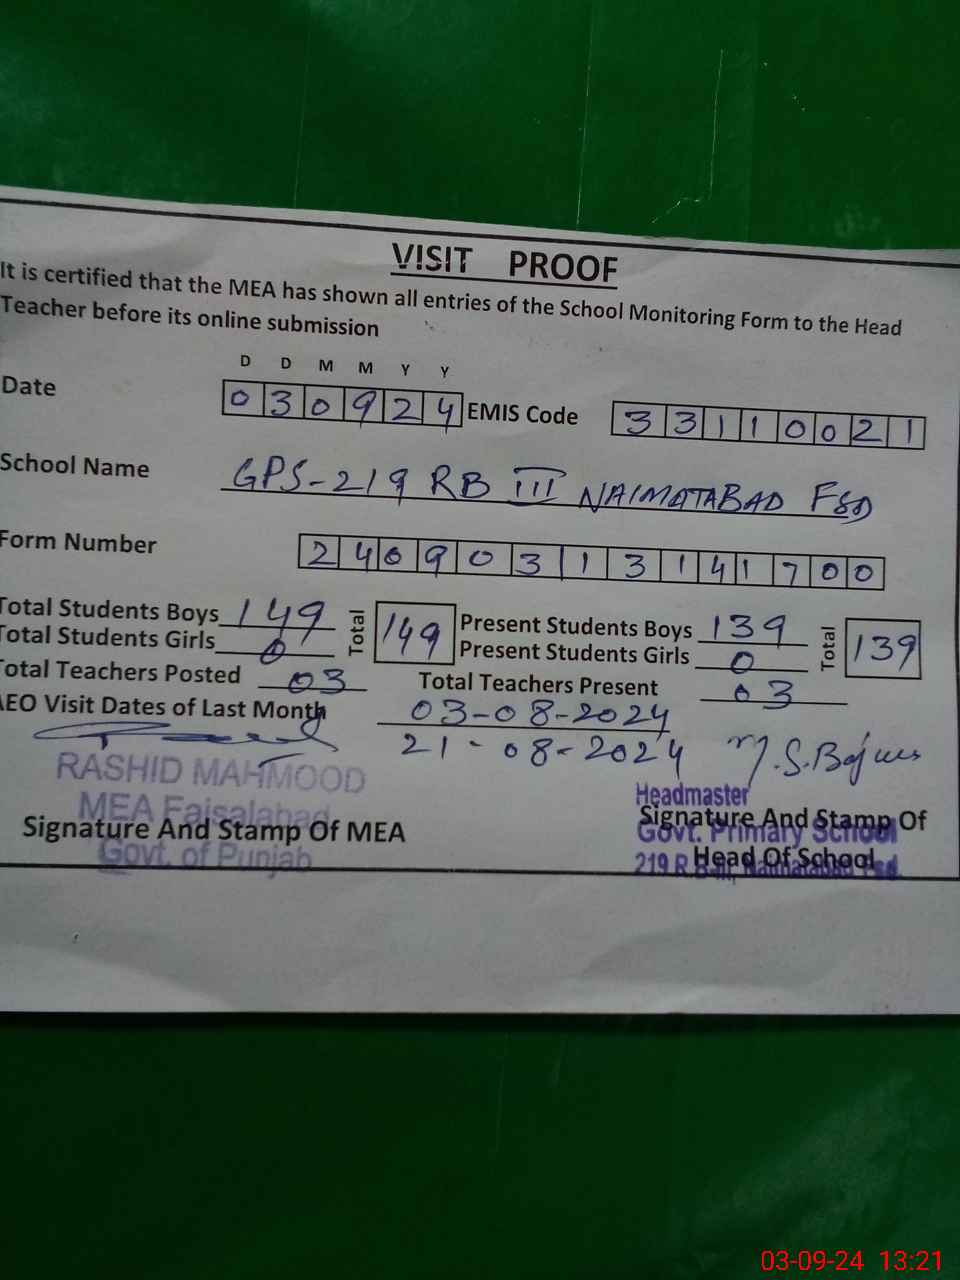 VISIT PROOF
It is certified that the MEA has shown all entries of the School Monitoring Form to the Head
Teacher before its online submission
D D M M Y Y
Date 0 3 0 9 2 4 EMIS Code 3 3 1 1 0 0 2 1
School Name GPS-219 RB III NAIMATABAD FSD
Form Number 2 4 0 9 0 3 1 3 1 4 1 7 0 0
Total Students Boys 149 Total 149 Present Students Boys 139 Total 139
Total Students Girls 0 Present Students Girls 0
Total Teachers Posted 03 Total Teachers Present 03
AEO Visit Dates of Last Month 03-08-2024
21-08-2024
RASHID MAHMOOD
MEA Faisalabad
Govt. of Punjab
Signature And Stamp Of MEA
Headmaster
Govt. Primary School
219 R.B
Signature And Stamp Of
Head Of School
03-09-24 13:21